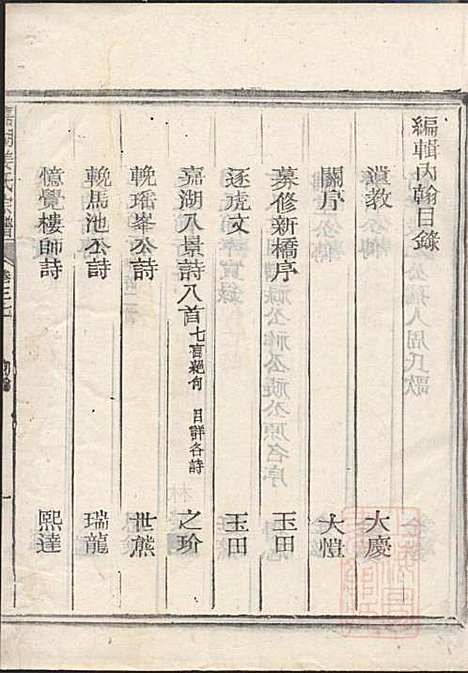 編輯內翰目錄
遺教 大慶
鬮序 大愷
募修新橋序 玉田
逐虎文 玉田
嘉湖八景詩八首 七言絶句 目詳各詩 之玠
輓瑤峯公詩 世熊
輓馬池公詩 瑞龍
憶覺樓師詩 熙達
嘉湖姜氏宗譜 卷三七 一